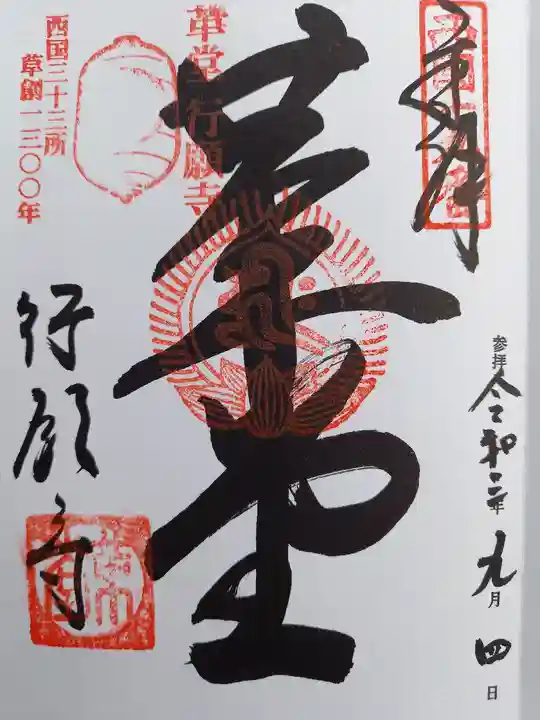 奉拝
参拝 令和二年 九月 四日
革堂
革堂行願寺
西国三十三所
草創一三〇〇年
行願寺